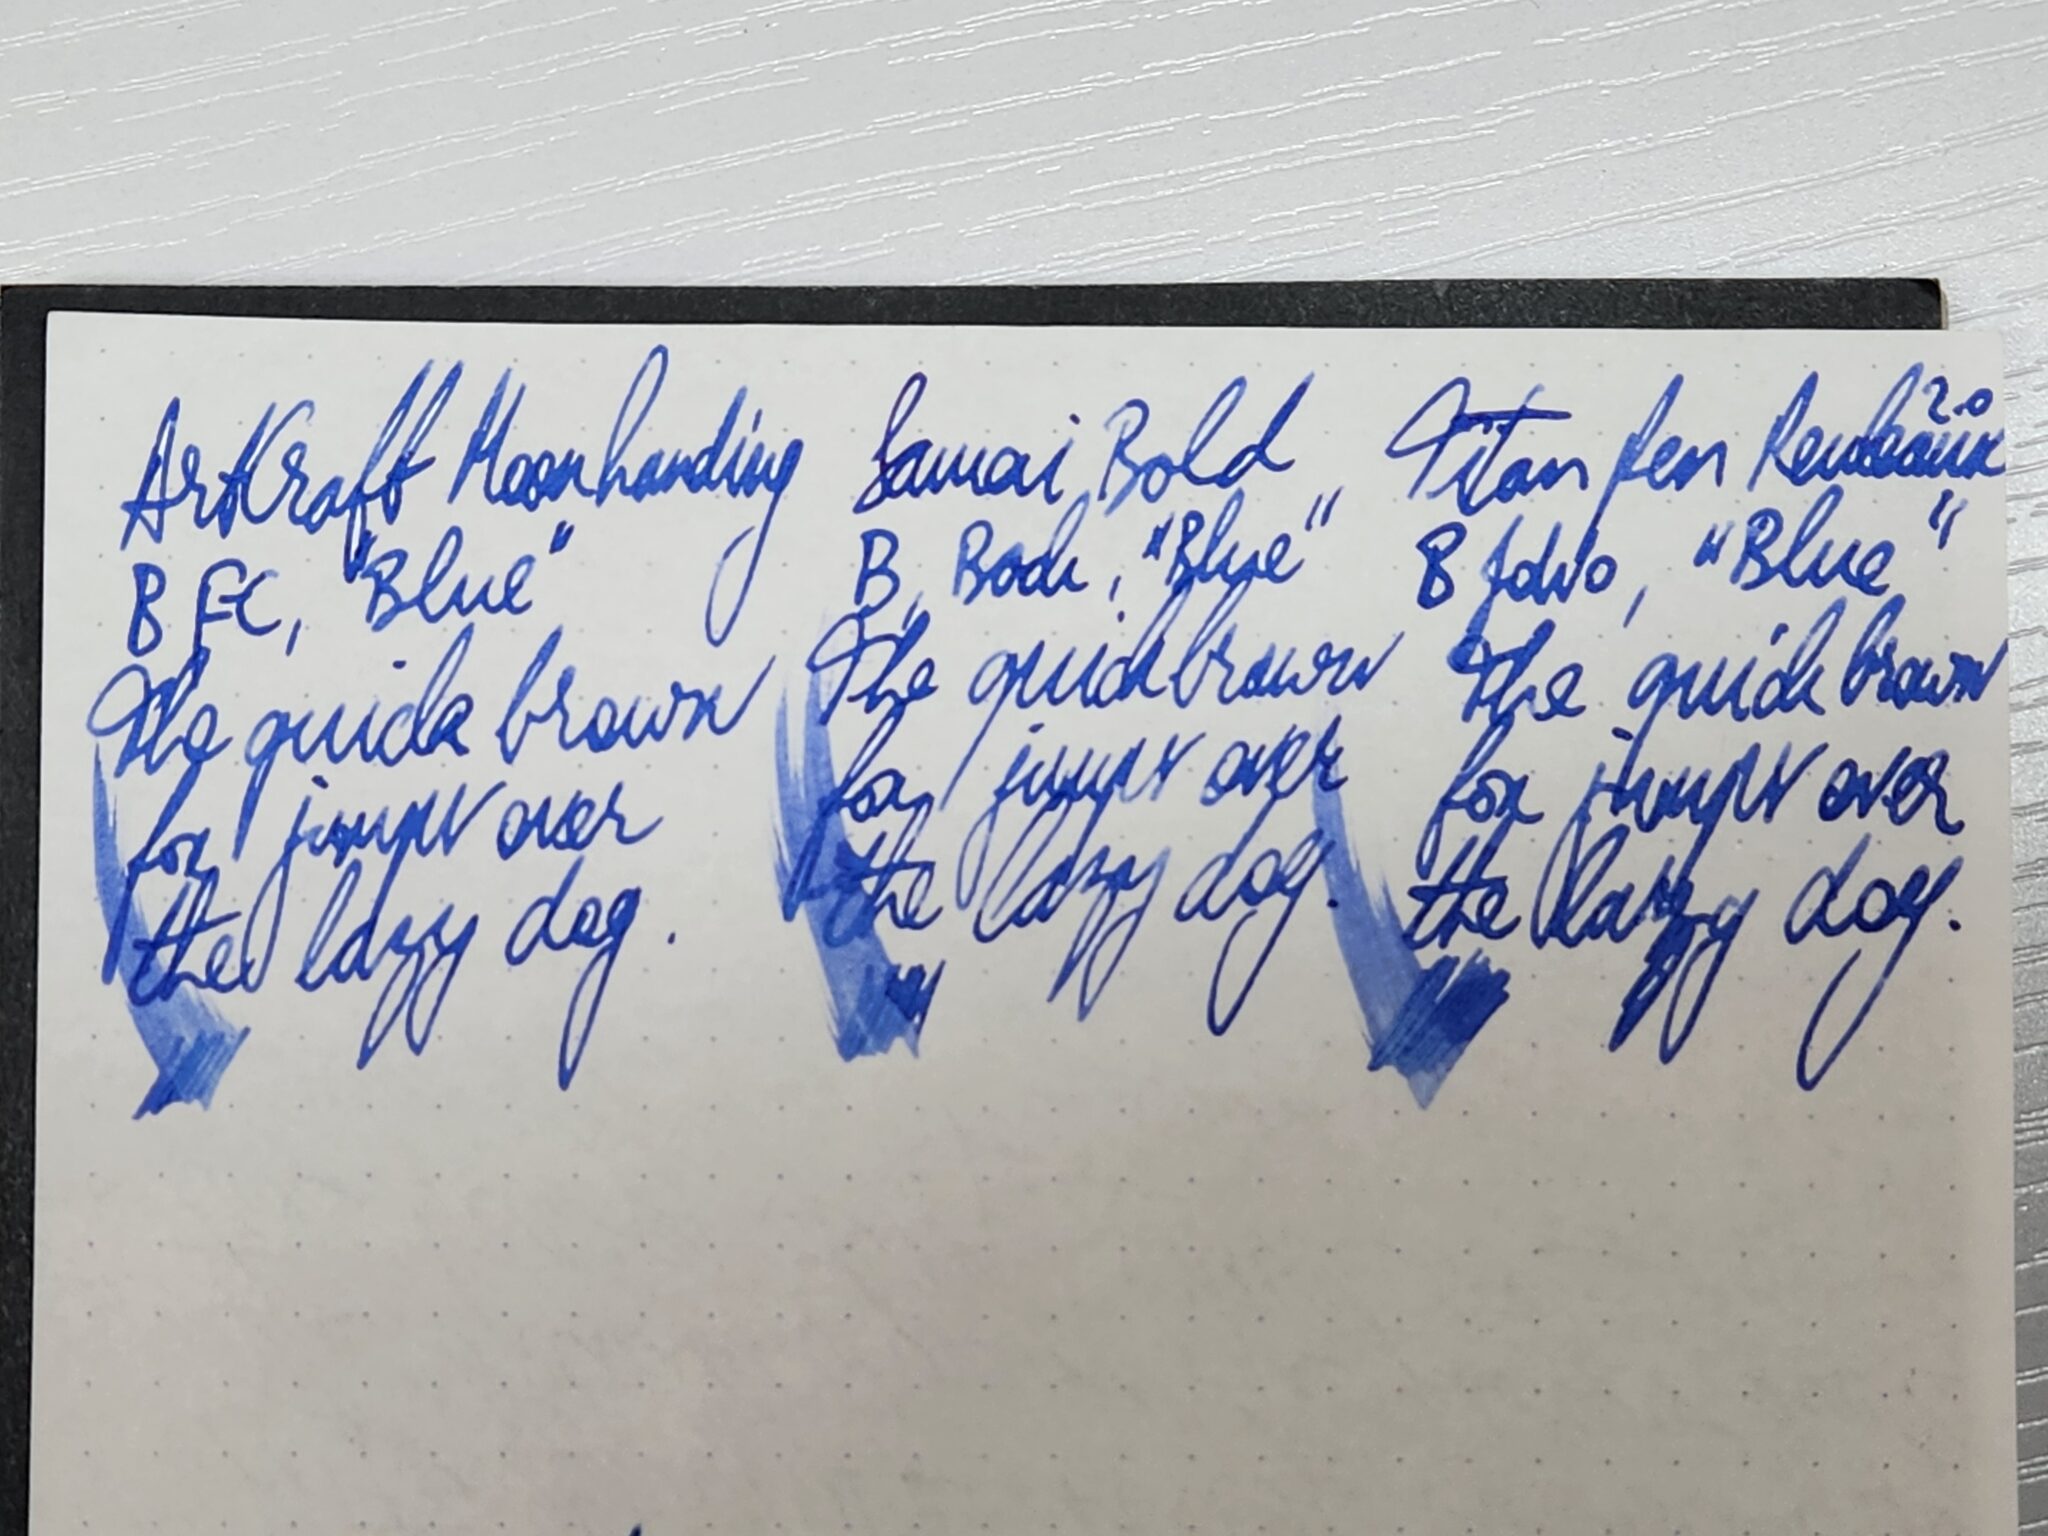 ArtKraft Moonhanding
B EC, "Blue"
The quick brown
fox jumps over
the lazy dog.
Samai Bold
B, Bock, "Blue"
The quick brown
fox jumps over
the lazy dog.
Titan Pen 2.0
B Jowo, "Blue"
The quick brown
fox jumps over
the lazy dog.